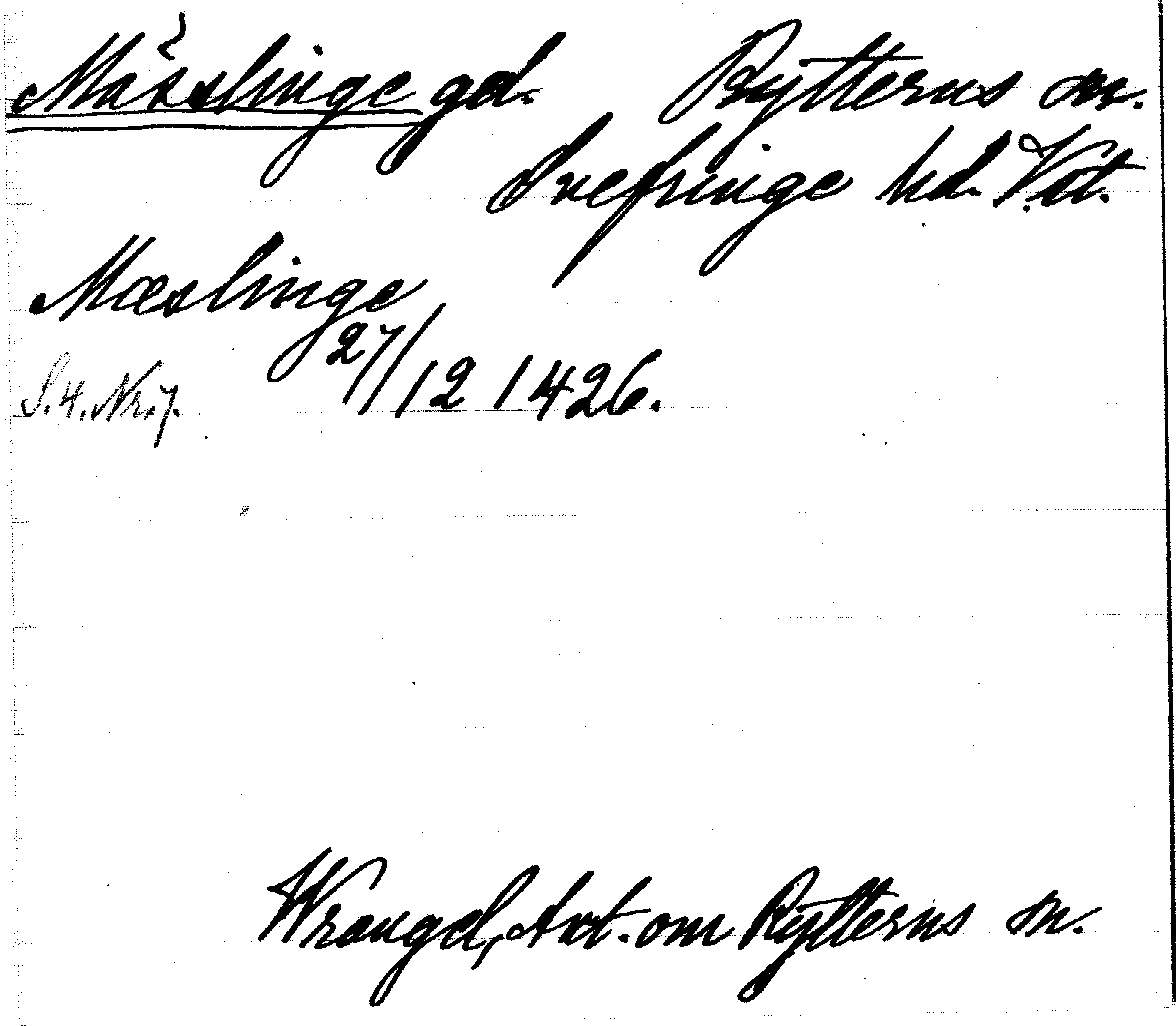 Mässlinge gd. Rytterns sn.
Snefringe hd. Vstm.
Mæslinge
27/12 1426.
S. 4. Nr. 7.
Wrangel, Ant. om Rytterns sn.